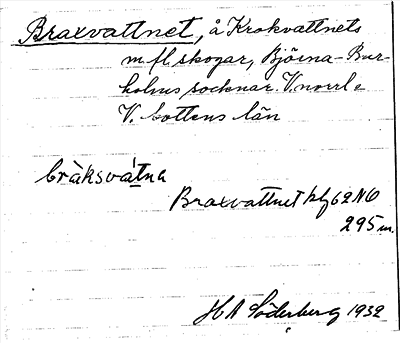 Braxvattnet, å Krokvattnets
m. fl. skogar, Björna-Bur-
holms socknar. V. norrl o
V. bottens län
bràksvátna
Braxvattnet kbl 62 NO
295 m.
H A Söderberg 1932